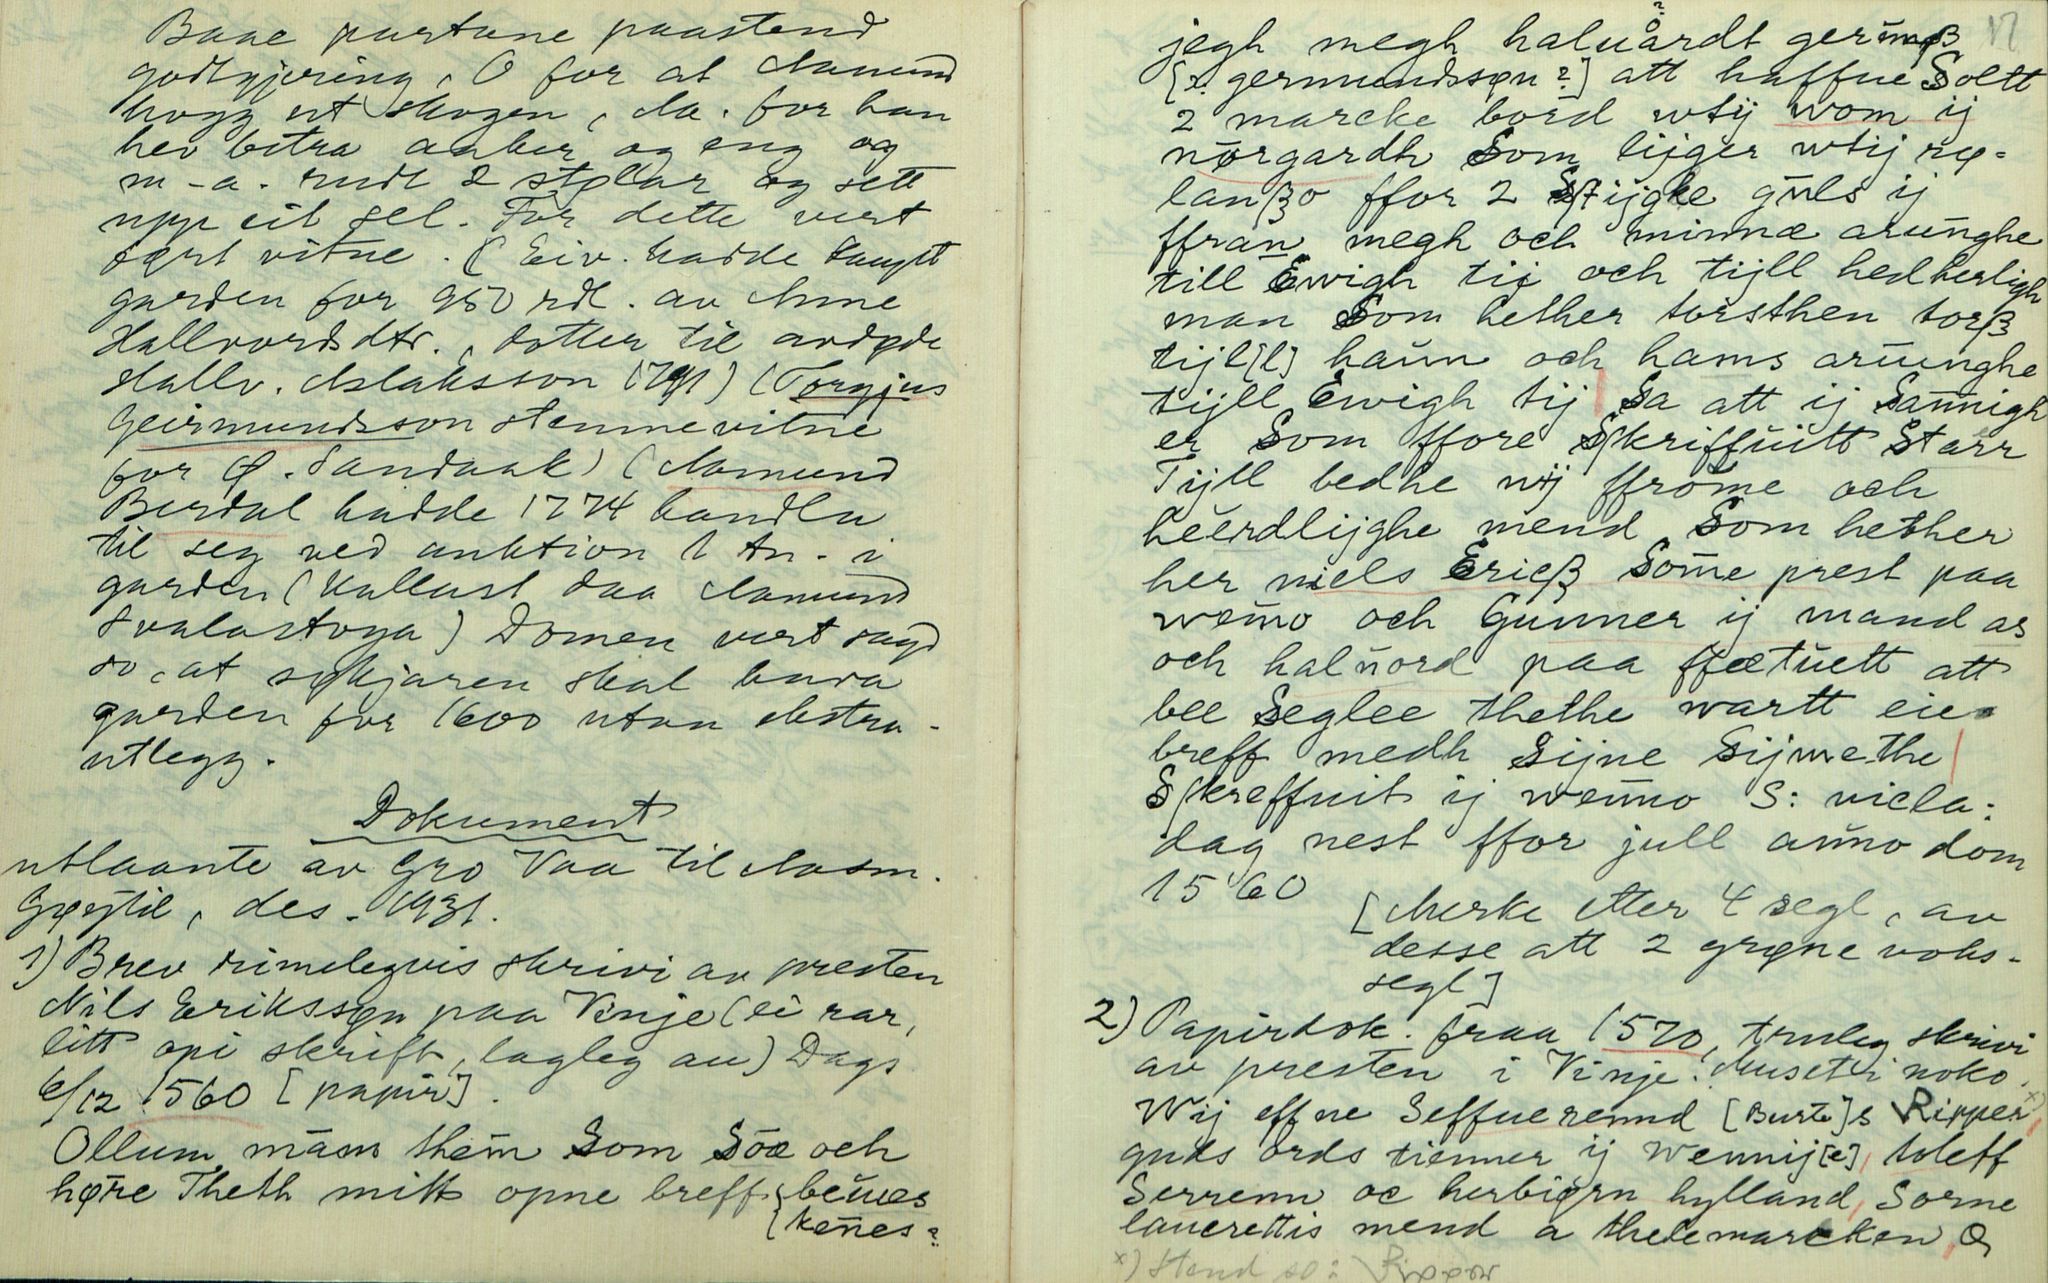 Baae partane paastend
godtgjering, O for at Aamund
hogg ut skogen, Aa. for han
hev bitra aaker og eng og
m-a. rudt 2 støllar og sett
upp eit sel. For dette vert
ført vitne. (Eiv. hadde kaupt
garden for 950 rdl. av Anne
Hallvordsdtr., dotter til avdøde
Hallv. Aslaksson 1791) (Torgjus
Geirmundsson stemnevitne
for Ø. Sandaak) (Aamund
Berdal hadde 1774 handla
til seg ved auktion 1 tn. i
garden (kallast daa Aamund
Svalastoga) Domen vert sagd
so, at søkjaren skal hava
garden for 1600 utan ekstra-
utlegg.
Dokument
utlaante av Gro Vaa til Aasm.
Grøstil, des. 1931.
1) Brev rimelegvis skrivi av presten
Nils Erikssøn paa Vinje (ei rar,
litt opi skrift, lagleg au) Dags
6/12 1560 [papir].
Ollum mans them Som Söe och
høre Theth mitt opne breff {beües
{kenes?
17
jegh megh haluårdt gerümß
[? germundssøn?] att haffue Soltt
2 marcke bord wtij wom ij
nørgardh Som lijger wtij rø-
lanßo ffor 2 Stijgke güls ij
ffran megh och minnæ arünghe
till Ewigh tij och tijll hedherligh
man Som hether torsthen torß
tijl[l] haün och hams arünghe
tijll Ewigh tij Sa att ij Sannigh
er Som ffore Skriffüitt Starr
Tijll bedhe wij ffrome och
heerdlijghe mend Som hether
her niels Erieß Some prest paa
weno och Gunner ij mand as
och halüord paa ffætüett att
bee Seglee thethe wartt eie
breff medh Sijne Sijnethe
Skreffuit ij wenno S: nicla:
dag nest ffor jull anno dom
1560
[Merke etter 4 segl, av
desse att 2 grøne voks-
segl]
2) Papirdok. fraa 1570, truleg skrivi
av presten i Vinje. Museti noko.
Wij effne Seffuerennd [Burte]s Ripper x)
guds ords tienner ij Wennij[e], toleff
Serrenn oc herbiørn hylland, Sorne
lauerettis mend a thelemarcken, O
x) Stend so: Ripper